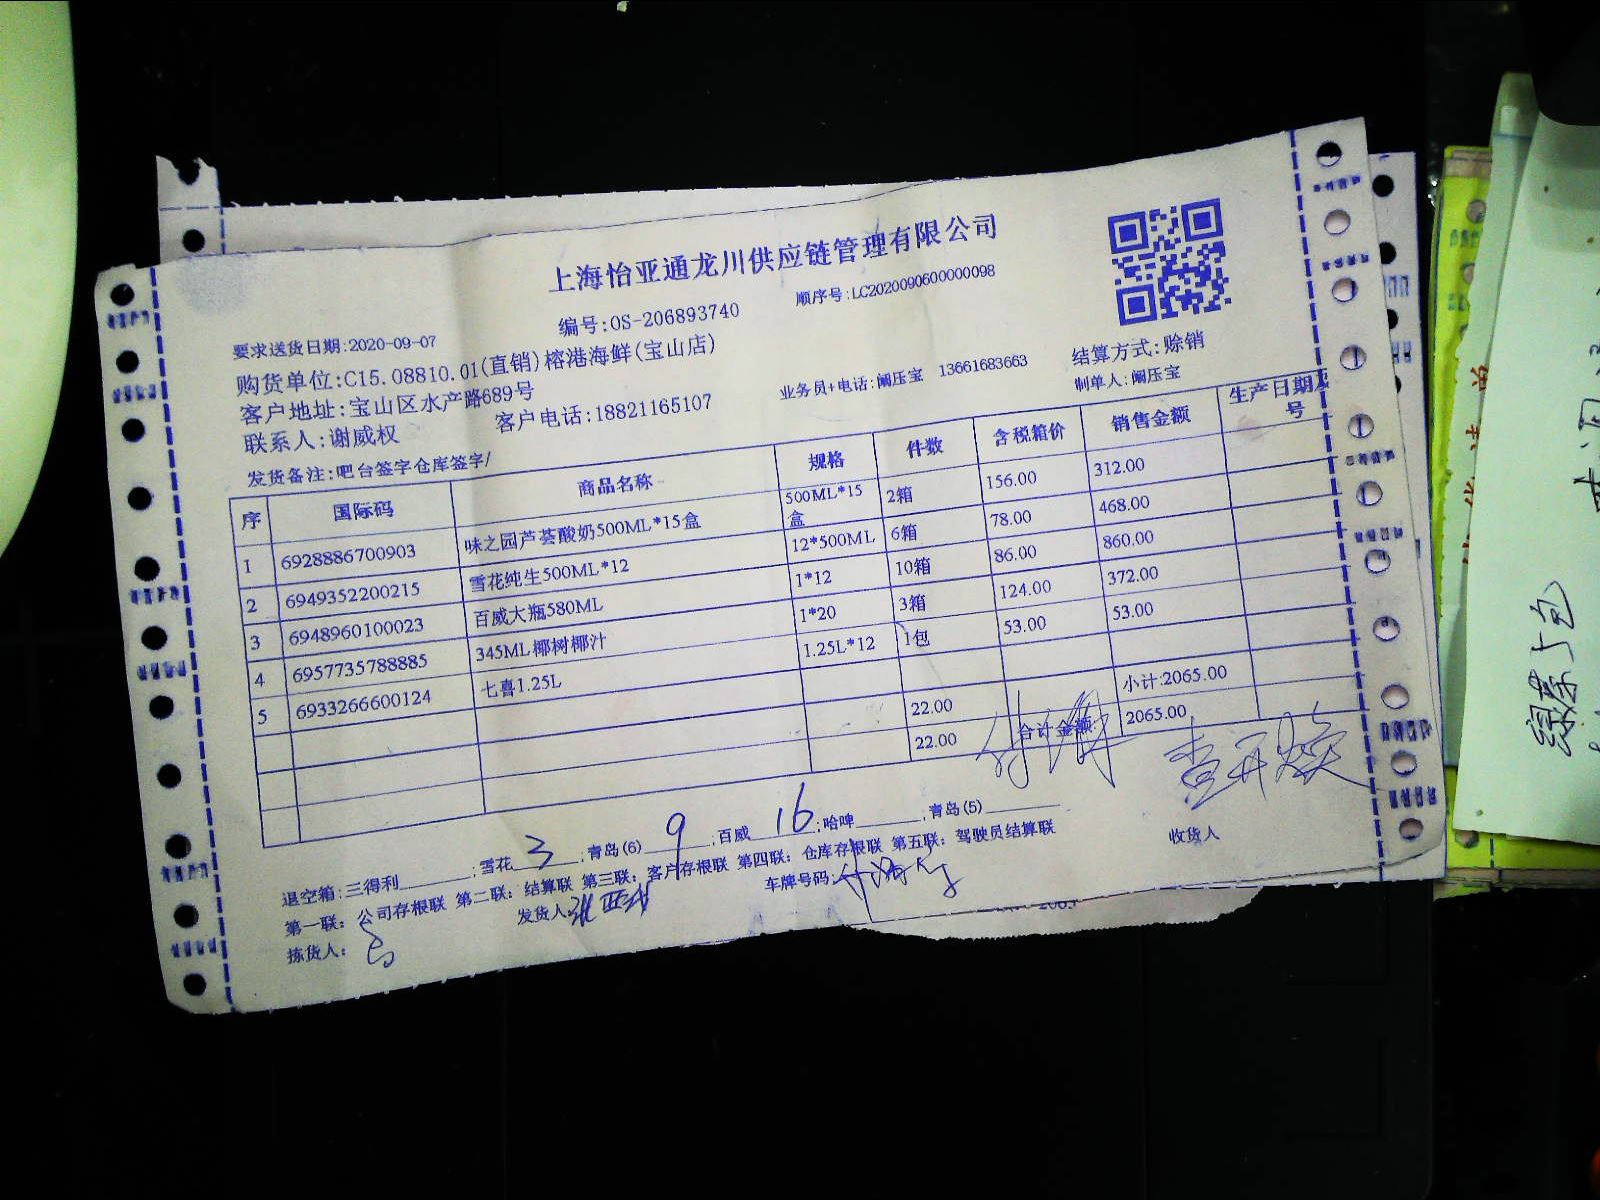 上海怡亚通龙川供应链管理有限公司
编号:OS-206893740
顺序号:LC2020090600000098
要求送货日期:2020-09-07
购货单位:C15.08810.01(直销)榕港海鲜(宝山店)
客户地址:宝山区水产路689号
业务员+电话:阚压宝 13661683663
结算方式:赊销
联系人:谢威权 客户电话:18821165107
制单人:阚压宝
发货备注:吧台签字仓库签字/
序 国际码 商品名称 规格 件数 含税箱价 销售金额 生产日期及 号
1 6928886700903 味之园芦荟酸奶500ML*15盒 500ML*15盒 2箱 156.00 312.00
2 6949352200215 雪花纯生500ML*12 12*500ML 6箱 78.00 468.00
3 6948960100023 百威大瓶580ML 1*12 10箱 86.00 860.00
4 6957735788885 345ML椰树椰汁 1*20 3箱 124.00 372.00
5 6933266600124 七喜1.25L 1.25L*12 1包 53.00 53.00
22.00 小计:2065.00
22.00 合计金额: 2065.00
退空箱:三得利______;雪花 3 ;青岛(6) 9 ;百威 16 ;哈啤______,青岛(5)______
第一联: 公司存根联 第二联: 结算联 第三联: 客户存根联 第四联: 仓库存根联 第五联: 驾驶员结算联
收货人
拣货人:
发货人
车牌号码:
绿茶5包